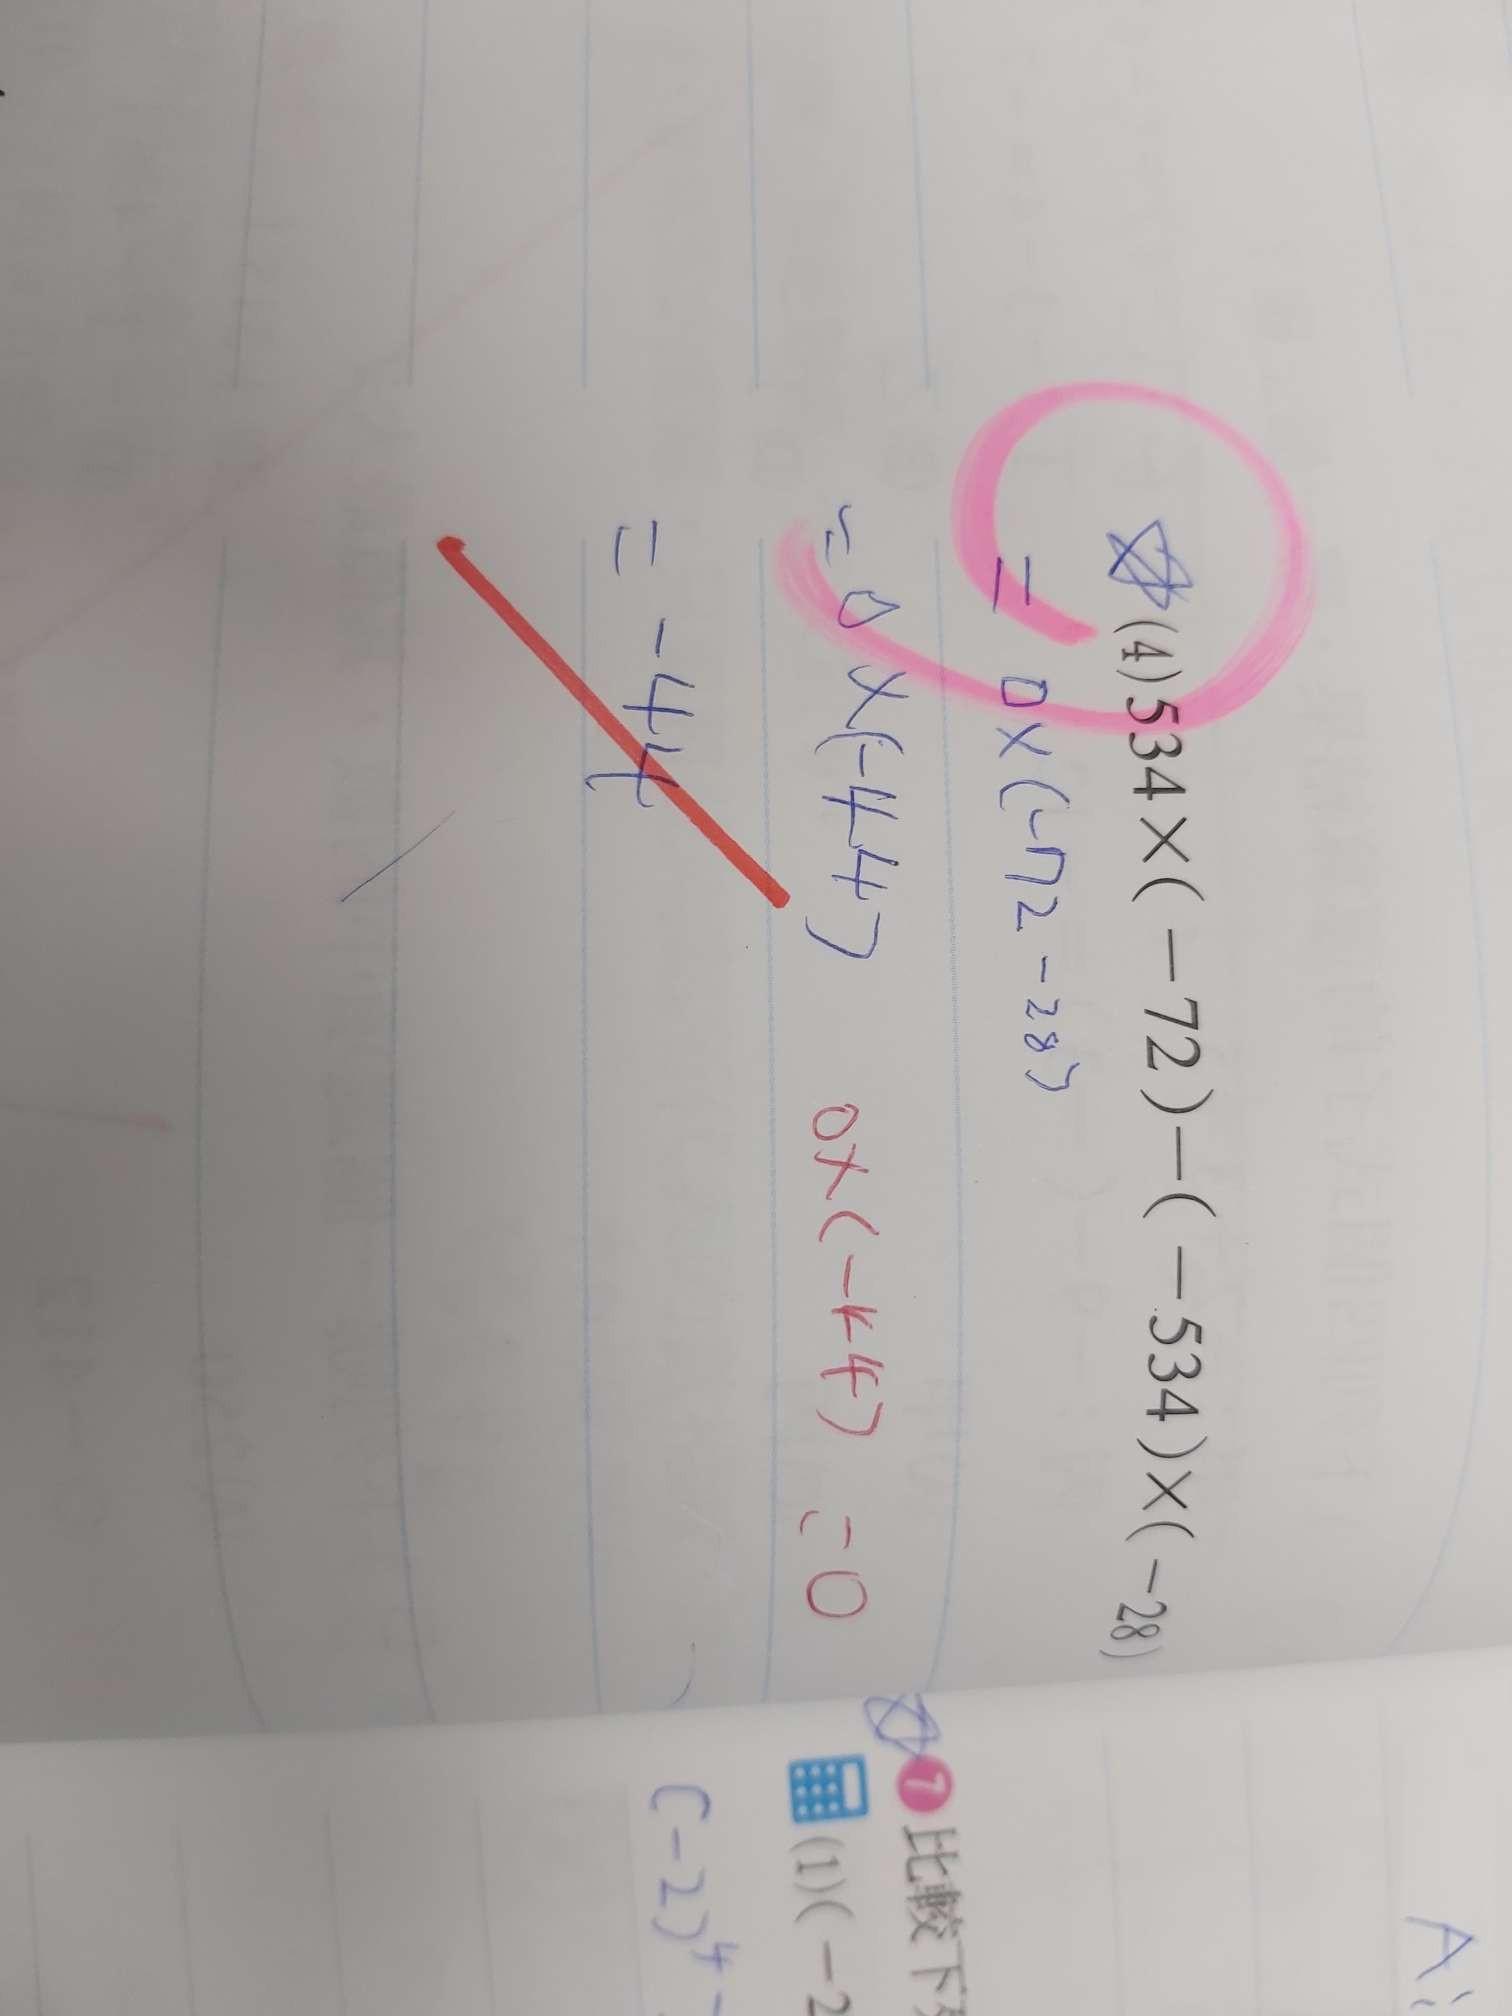 (4) 534×(－72)－(－534)×(－28)
= 0×(-72-28)
= 0×(-44) 0×(-44) = 0
= -44
7 比較下
(1)(－2
(-2)⁴-
A